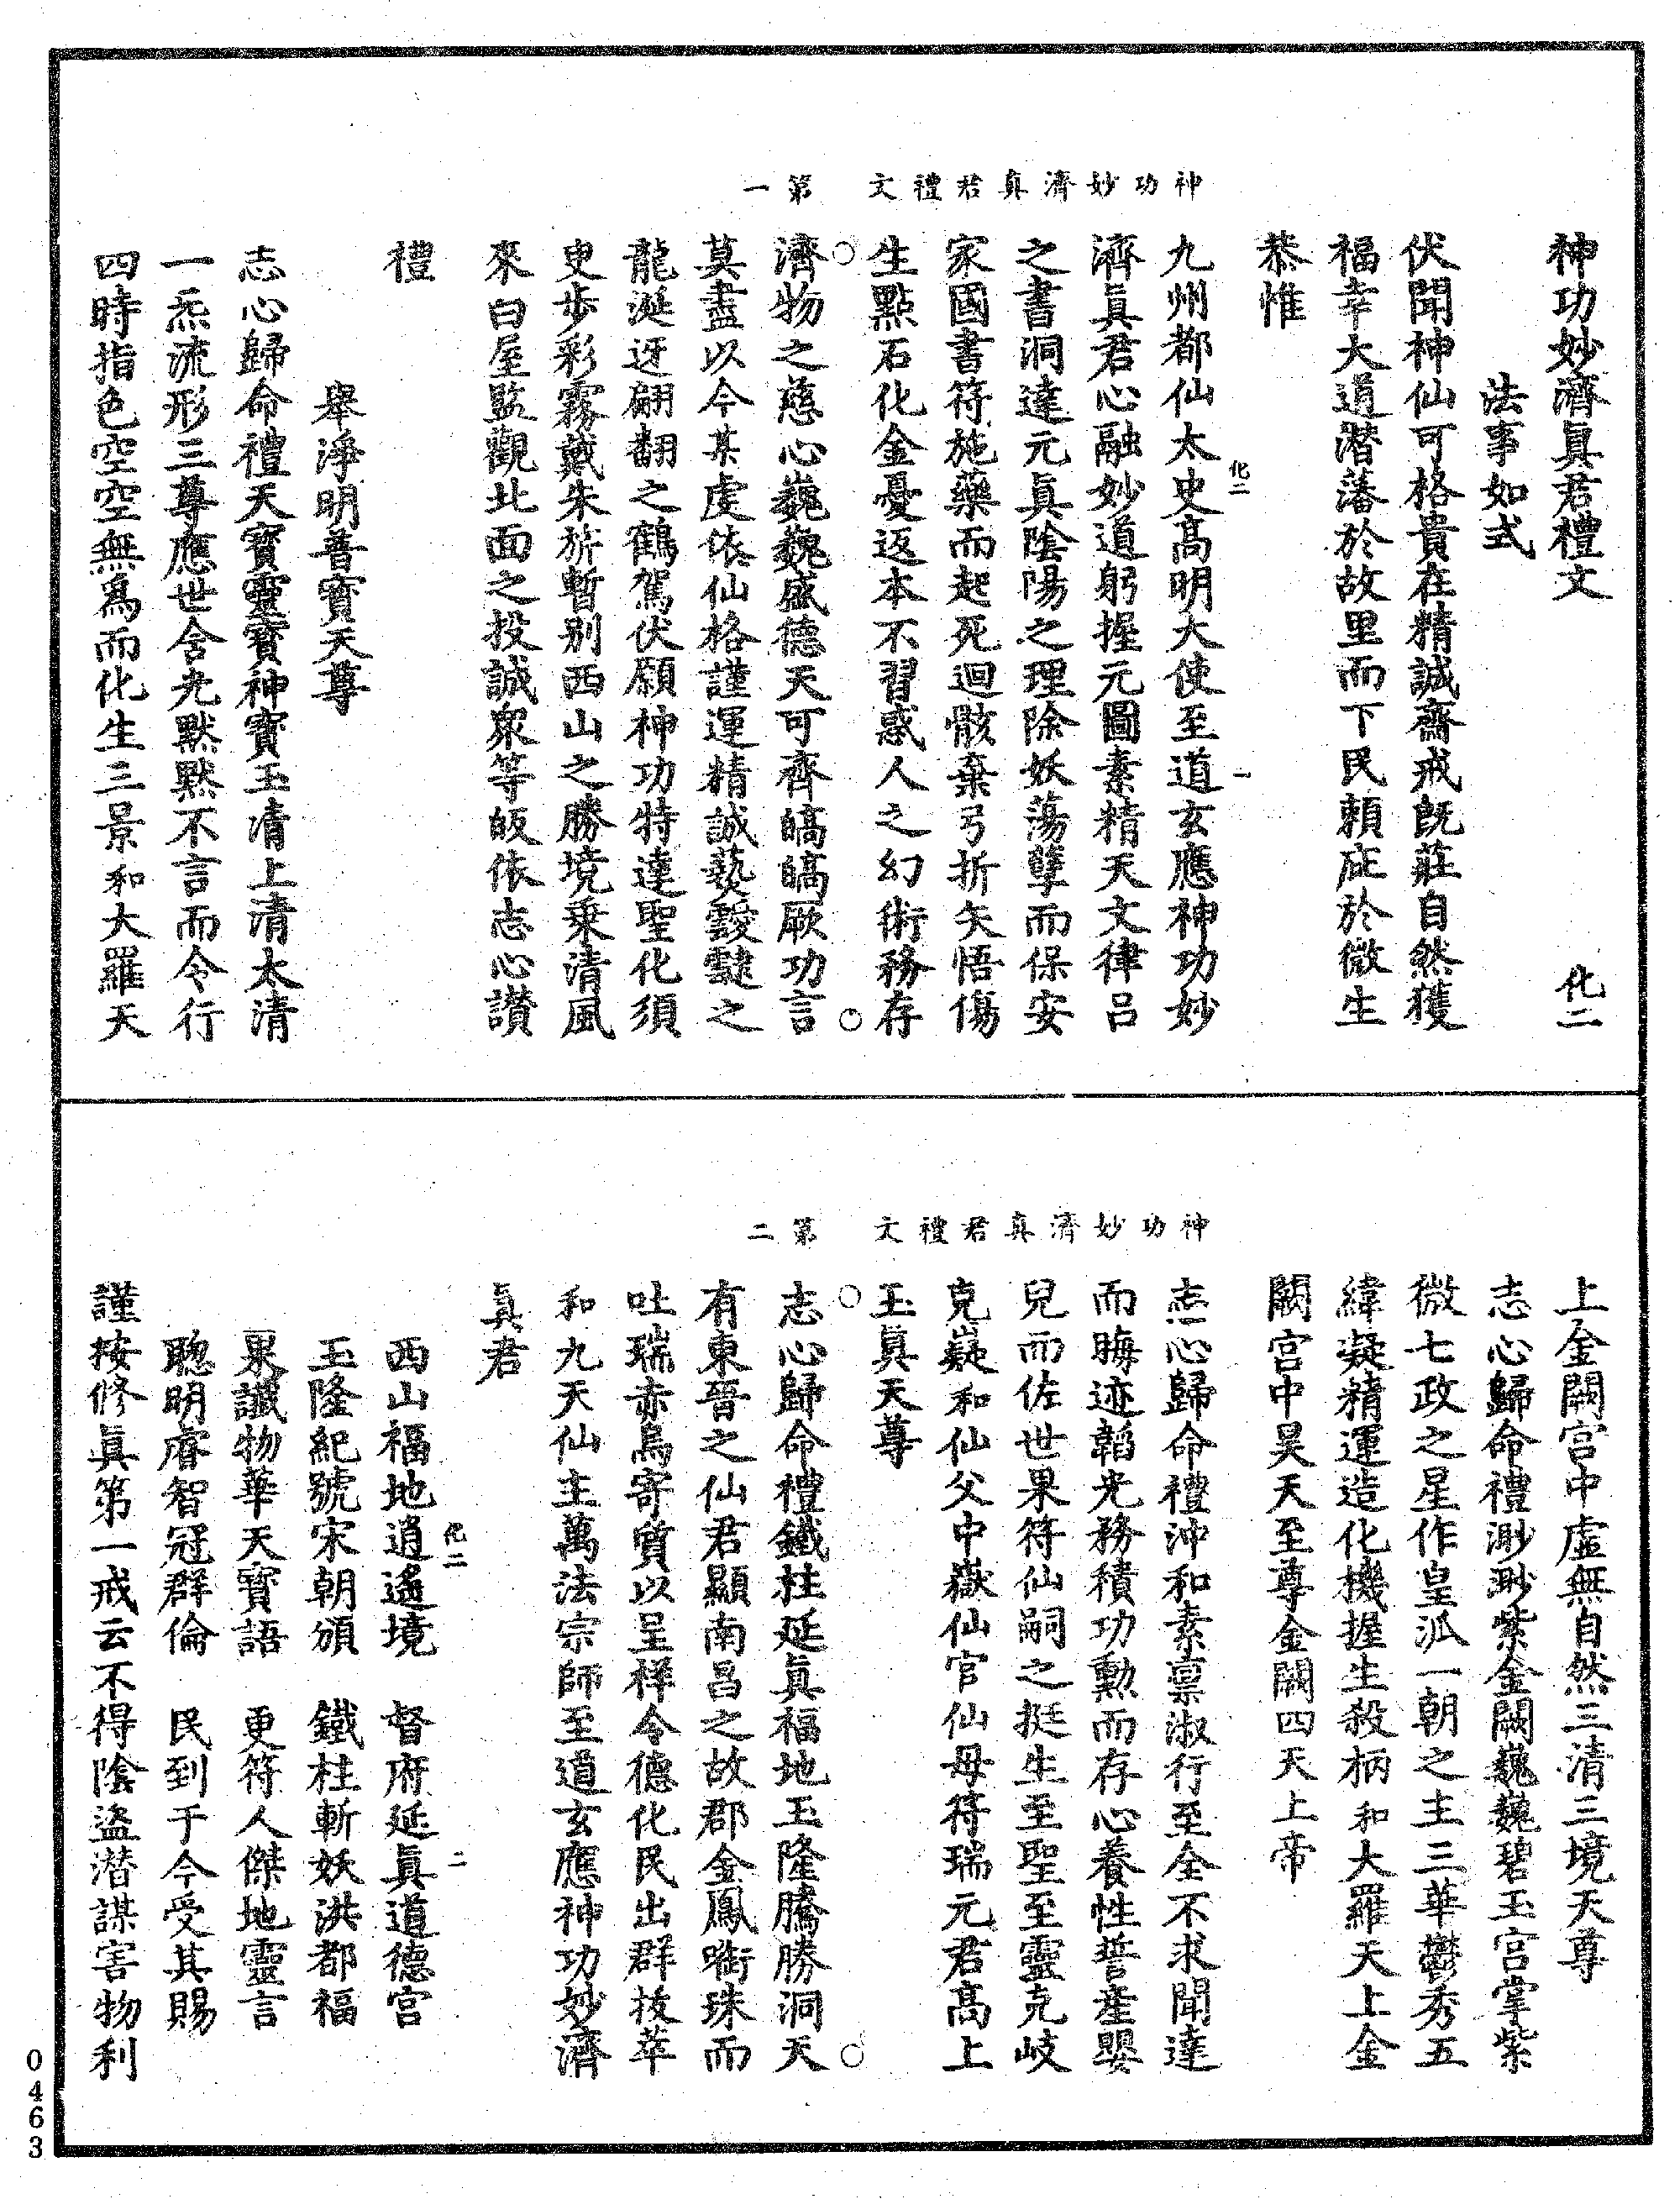 神功妙濟眞君禮文　化二
法事如式
伏聞神仙可格貴在精誠齋戒旣莊自然獲
福幸大道潜藩於故里而下民賴庇於微生
恭惟
九州都仙太史高明大使至道玄應神功妙
濟眞君心融妙道躬握元圖素精天文律呂
之書洞達元眞陰陽之理除妖蕩孽而保安
家國書符施藥而起死迴骸棄弓折矢悟傷
生點石化金憂返本不習惑人之幻術務存
濟物之慈心巍巍盛德天可齊皜皜厥功言
莫盡以今某虔依仙格謹運精誠爇靉靆之
龍涎迓翩翻之鶴駕伏願神功特達聖化須
臾步彩霧戴朱旂暫别西山之勝境乗清風
來白屋監觀北面之投誠衆等皈依志心讃
禮
舉淨明普寳天尊
志心歸命禮天寳靈寳神寳玉清上清太清
一炁流形三尊應世含光默默不言而令行
四時指色空空無爲而化生三景和大羅天
神功妙濟眞君禮文　第一
化二　一
上金闕宫中虛無自然三清三境天尊
志心歸命禮渺渺紫金闕巍巍碧玉宫掌紫
微七政之星作皇派一朝之主三華鬱秀五
緯凝精運造化機握生殺柄和大羅天上金
闕宫中昊天至尊金闕四天上帝
志心歸命禮沖和素禀淑行至全不求聞達
而晦迹韜光務積功勲而存心養性誓產嬰
兒而佐世果符仙嗣之挺生至聖至靈克岐
克嶷和仙父中嶽仙官仙母符瑞元君高上
玉眞天尊
志心歸命禮鐵柱延眞福地玉隆騰勝洞天
有東晉之仙君顯南昌之故郡金鳳啣珠而
吐瑞赤烏寄質以呈样令德化民出群拔萃
和九天仙主萬法宗師至道玄應神功妙濟
眞君
西山福地逍遙境　督府延眞道德宫
玉隆紀號宋朝頒　鐵柱斬妖洪都福
果讖物華天寳語　更符人傑地靈言
聰明睿智冠群倫　民到于今受其賜
謹按修眞第一戒云不得陰盜潜謀害物利
神功妙濟眞君禮文　第二
化二　二
0463